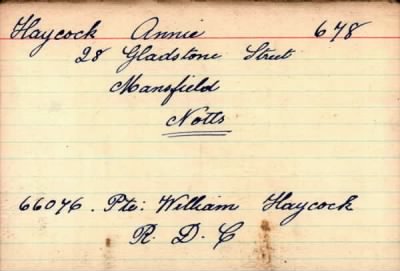 Haycock Annie 678
28 Gladstone Street
Mansfield
Notts
66076. Pte: William Haycock
R. D. C